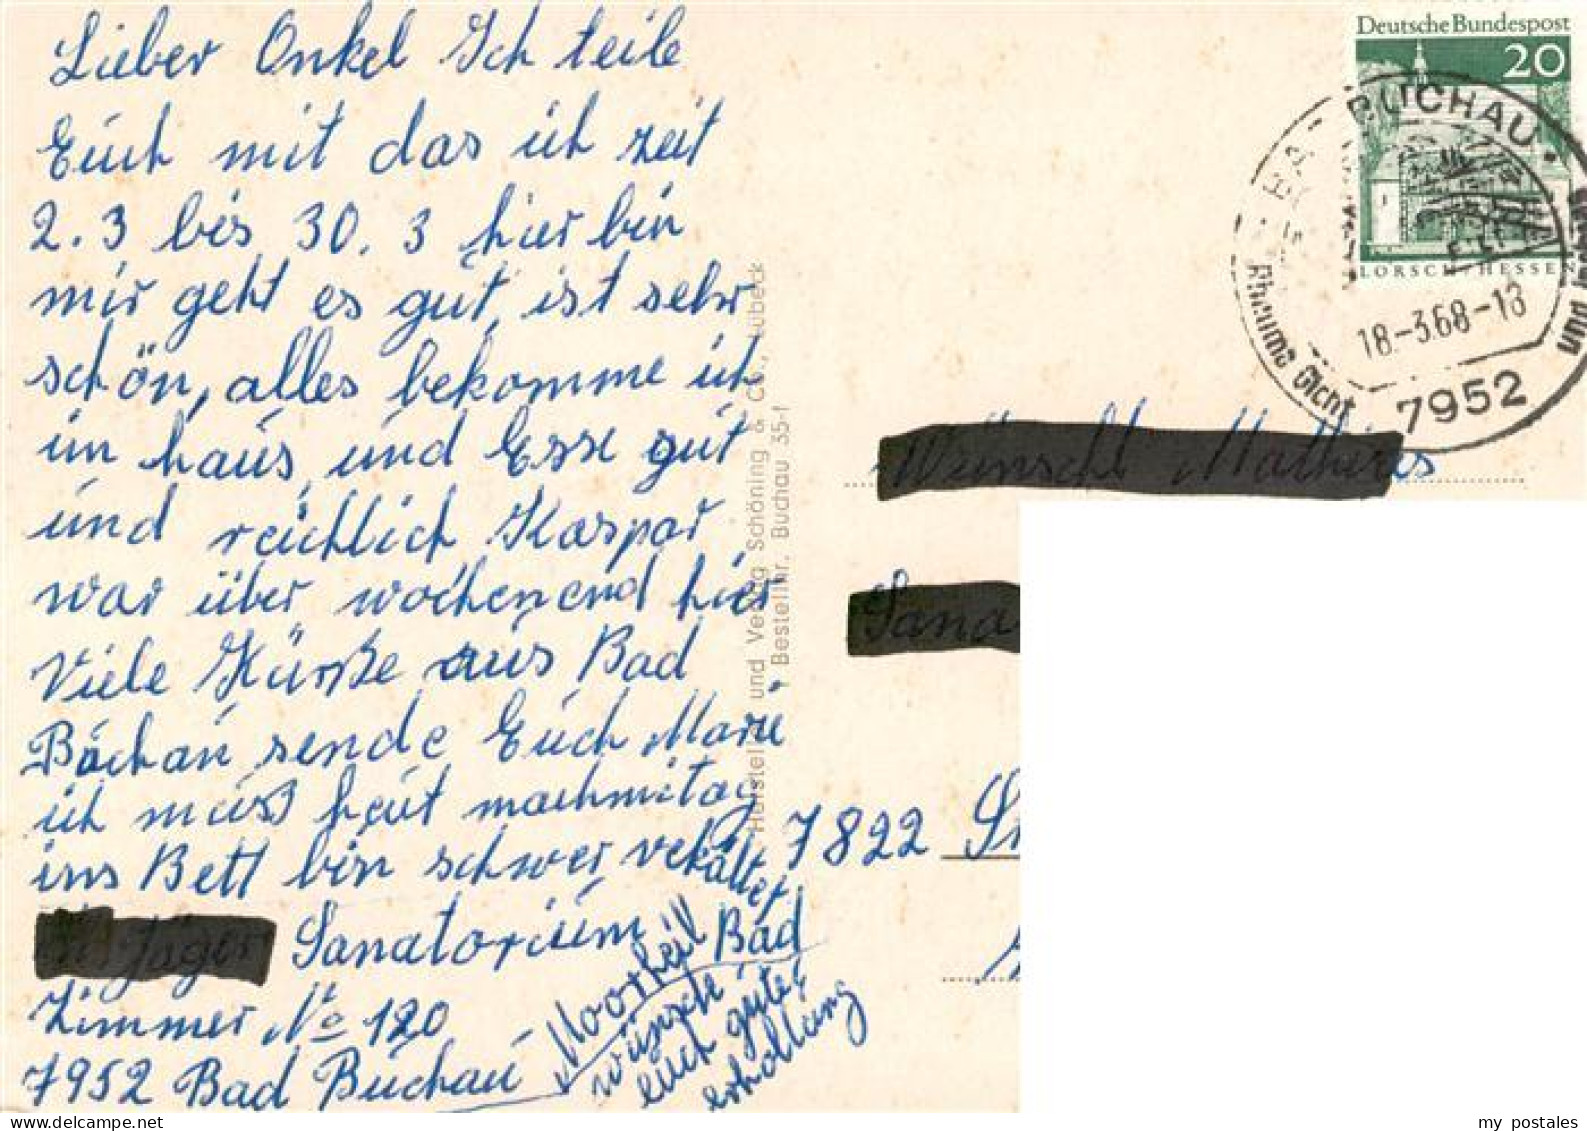 Lieber Onkel Ich teile
Euch mit das ich zeit
2.3 bis 30.3 hier bin
mir geht es gut, ist sehr
schön, alles bekomme ich
im haus, und Esse gut
und reichlich Kaspar
war über wochenend hier
Viele Grüße aus Bad
Buchau sende Euch Marie
ich muss heut nachmitag
ins Bett bin schwer verkältet
Sanatorium
Moorheil Bad
Zimmer No 120
7952 Bad Buchau
wünsche
euch gute
erholung
Herstellung und Verlag Schöning & Co., Lübeck
Bestellnr. Buchau 35-f
Deutsche Bundespost
20
LORSCH/HESSE
BUCHAU
Rheuma Gicht
und
18.-3.68-18
7952
7822
my postales